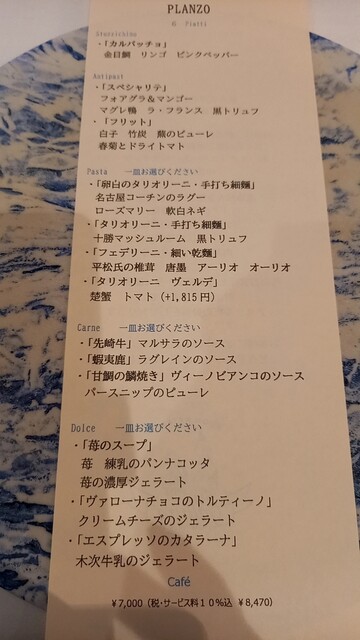 PLANZO
6 Piatti
Stuzzichino
・「カルパッチョ」
金目鯛 リンゴ ピンクペッパー
Antipast
・「スペシャリテ」
フォアグラ＆マンゴー
マグレ鴨 ラ・フランス 黒トリュフ
・「フリット」
白子 竹炭 蕪のピューレ
春菊とドライトマト
Pasta 一皿お選びください
・「卵白のタリオリーニ・手打ち細麺」
名古屋コーチンのラグー
ローズマリー 軟白ネギ
・「タリオリーニ・手打ち細麺」
十勝マッシュルーム 黒トリュフ
・「フェデリーニ・細い乾麺」
平松氏の椎茸 唐墨 アーリオ オーリオ
・「タリオリーニ ヴェルデ」
楚蟹 トマト（+1,815円）
Carne 一皿お選びください
・「先崎牛」マルサラのソース
・「蝦夷鹿」ラグレインのソース
・「甘鯛の鱗焼き」ヴィーノビアンコのソース
パースニップのピューレ
Dolce 一皿お選びください
・「苺のスープ」
苺 練乳のパンナコッタ
苺の濃厚ジェラート
・「ヴァローナチョコのトルティーノ」
クリームチーズのジェラート
・「エスプレッソのカタラーナ」
木次牛乳のジェラート
Café
¥7,000（税・サービス料１０％込 ¥8,470）